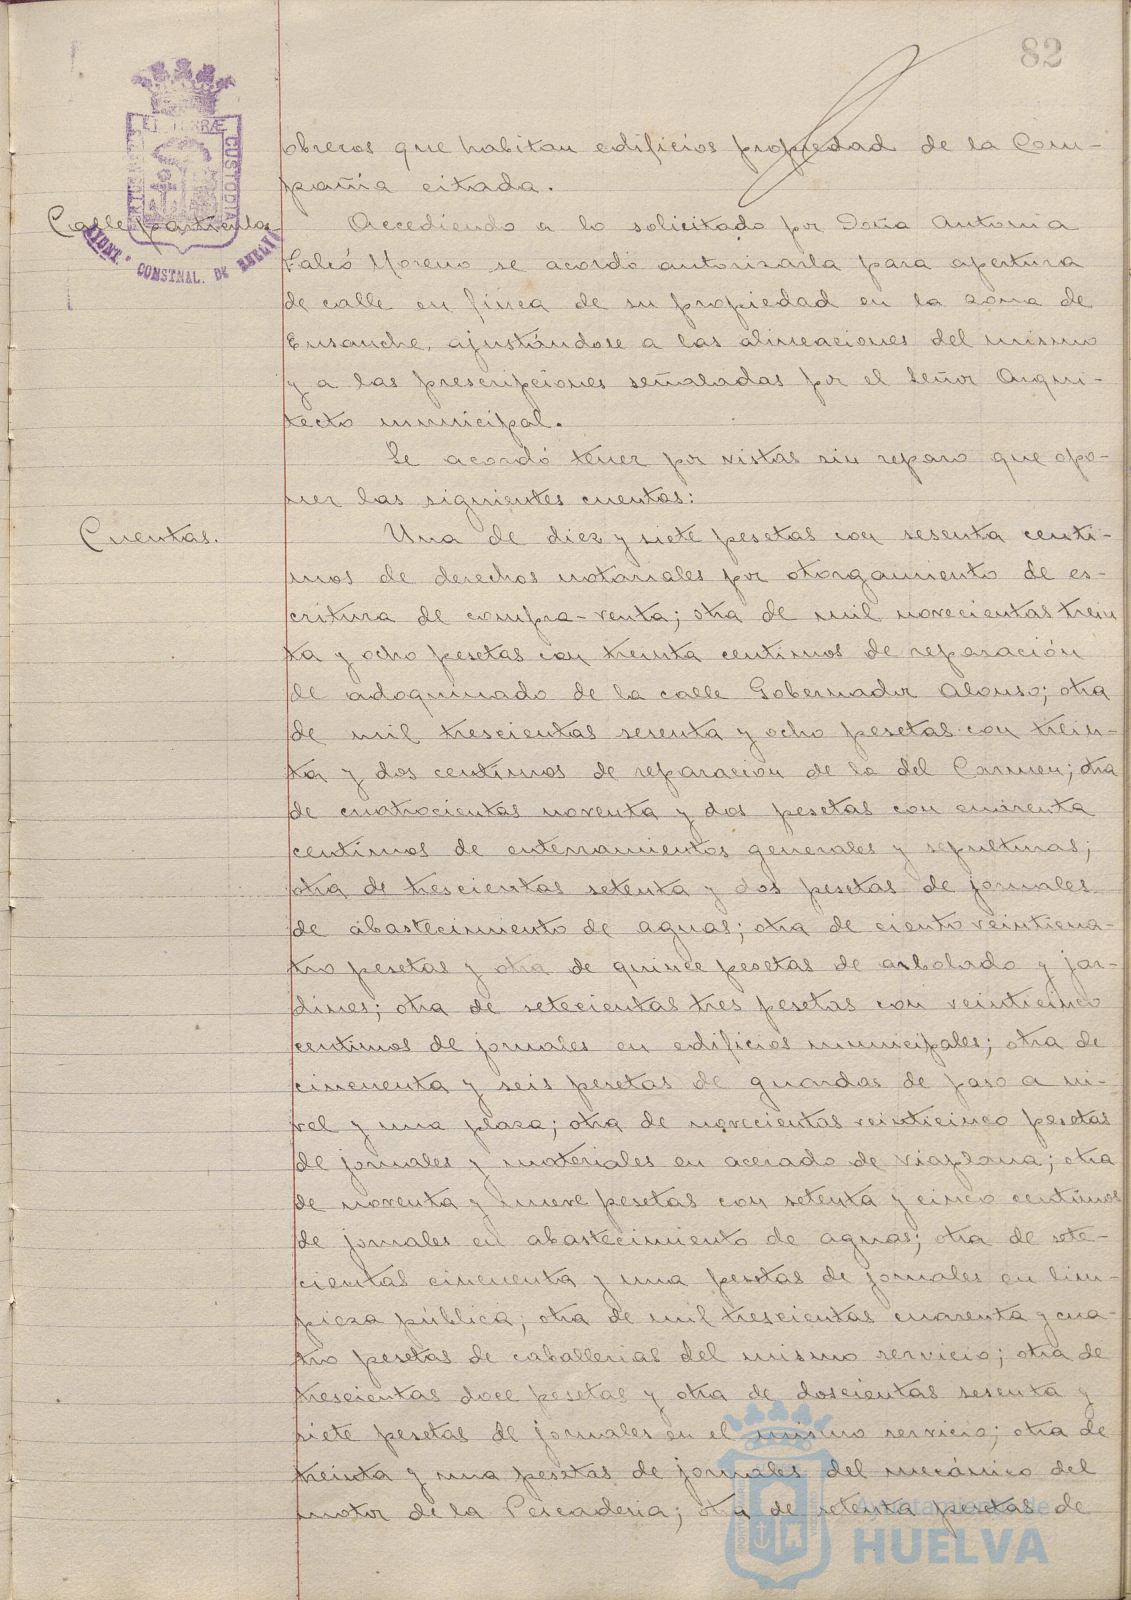 82
obreros que habitan edificios propiedad de la Com-
pañía citada.
Calle particular.
Accediendo a lo solicitado por Doña Antonia
Moreno se acordó autorizarla para apertura
de calle en finca de su propiedad en la zona de
Ensanche, ajustándose a las alineaciones del mismo
y a las prescripciones señaladas por el Señor Arqui-
tecto municipal.
Se acordó tener por vistas sin reparo que opo-
ner las siguientes cuentas:
Cuentas.
Una de diez y siete pesetas con sesenta centi-
mos de derechos notariales por otorgamiento de es-
critura de compra-venta; otra de mil novecientas trein
ta y ocho pesetas con treinta centimos de reparación
de adoquinado de la calle Gobernador Alonso; otra
de mil trescientas sesenta y ocho pesetas con trein-
ta y dos centimos de reparación de la del Carmen; otra
de cuatrocientas noventa y dos pesetas con cuarenta
centimos de enterramientos generales y sepulturas;
otra de trescientas setenta y dos pesetas de jornales
de abastecimiento de aguas; otra de ciento veinticua-
tro pesetas y otra de quince pesetas de arbolado y jar-
dines; otra de setecientas tres pesetas con veinticinco
centimos de jornales en edificios municipales; otra de
cincuenta y seis pesetas de guardas de paso a ni-
vel y una plaza; otra de novecientas veinticinco pesetas
de jornales y materiales en acerado de Viaplana; otra
de noventa y nueve pesetas con setenta y cinco centimos
de jornales en abastecimiento de aguas; otra de sete-
cientas cincuenta y una pesetas de jornales en lim-
pieza pública; otra de mil trescientas cuarenta y cua-
tro pesetas de caballerias del mismo servicio; otra de
trescientas doce pesetas y otra de doscientas sesenta y
siete pesetas de jornales en el mismo servicio; otra de
treinta y una pesetas de jornales del mecánico del
motor de la Pescaderia; otra de setenta pesetas de
AYUNT.º CONSTNAL. DE HUELVA
CUSTODIA
Ayuntamiento de
HUELVA